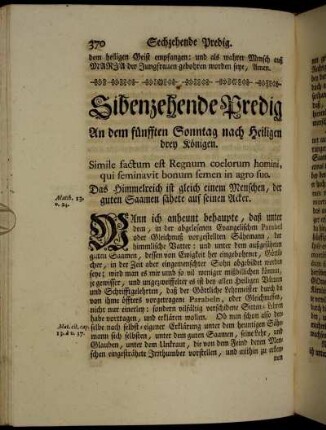 370 Sechzehende Predig.
dem heiligen Geist empfangen: und als wahrer Mensch auß
MARIA der Jungfrauen gebohren worden seye, Amen.
Sibenzehende Predig
An dem fünfften Sonntag nach Heiligen
drey Königen.
Simile factum est Regnum coelorum homini,
qui seminavit bonum semen in agro suo.
Das Himmelreich ist gleich einem Menschen, der
Matth. 13.
v. 24.
guten Saamen sähete auf seinen Acker.
WAnn ich anheunt behaupte, daß unter
dem, in der abgelesenen Evangelischen Parabel
oder Gleichnuß vorgestellten Söhemann, der
himmlische Vatter: und unter dem außgesäheten
guten Saamen, dessen von Ewigkeit her eingebohrner, Göttli-
cher, in der Zeit aber eingemenschter Sohn abgebildet worden
seye; wird man es mir und so vil weniger mißbilligen können,
je gewisser, und ungezweiffleter es ist bey allen Heiligen Vättern
und Schrifftgelehrten, daß der Göttliche Lehrmeister durch die
von ihme öffters vorgetragene Parabeln, oder Gleichnussen,
nicht nur einerley: sondern vilfältig verschidene Sitten-Lehren
habe vortragen, und erklären wollen. Ob nun schon also der-
selbe nach selbst-eigener Erklärung unter dem heuntigen Söhe-
mann sich selbsten, unter dem guten Saamen, seine Lehr, und
Glauben, unter dem Unkraut, die von dem Feind deren Men-
schen eingesträhete Irrthumber vorstellen, und mithin zu erken-
nen